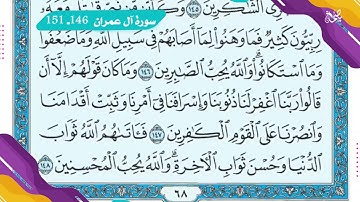 سورة آل عمران 146ـ 151
ى الشَّٰكِرِينَ ١٤٥ وَكَأَيِّن مِّن نَّبِيٍّ قَٰتَلَ مَعَهُۥ
رِبِّيُّونَ كَثِيرٌ فَمَا وَهَنُوا۟ لِمَآ أَصَابَهُمْ فِى سَبِيلِ ٱللَّهِ وَمَا ضَعُفُوا۟
وَمَا ٱسْتَكَانُوا۟ ۗ وَٱللَّهُ يُحِبُّ ٱلصَّٰبِرِينَ ١٤٦ وَمَا كَانَ قَوْلَهُمْ إِلَّآ أَن
قَالُوا۟ رَبَّنَا ٱغْفِرْ لَنَا ذُنُوبَنَا وَإِسْرَافَنَا فِىٓ أَمْرِنَا وَثَبِّتْ أَقْدَامَنَا
وَٱنصُرْنَا عَلَى ٱلْقَوْمِ ٱلْكَٰفِرِينَ ١٤٧ فَـَٔاتَىٰهُمُ ٱللَّهُ ثَوَابَ
ٱلدُّنْيَا وَحُسْنَ ثَوَابِ ٱلْـَٔاخِرَةِ ۗ وَٱللَّهُ يُحِبُّ ٱلْمُحْسِنِينَ ١٤٨
٦٨